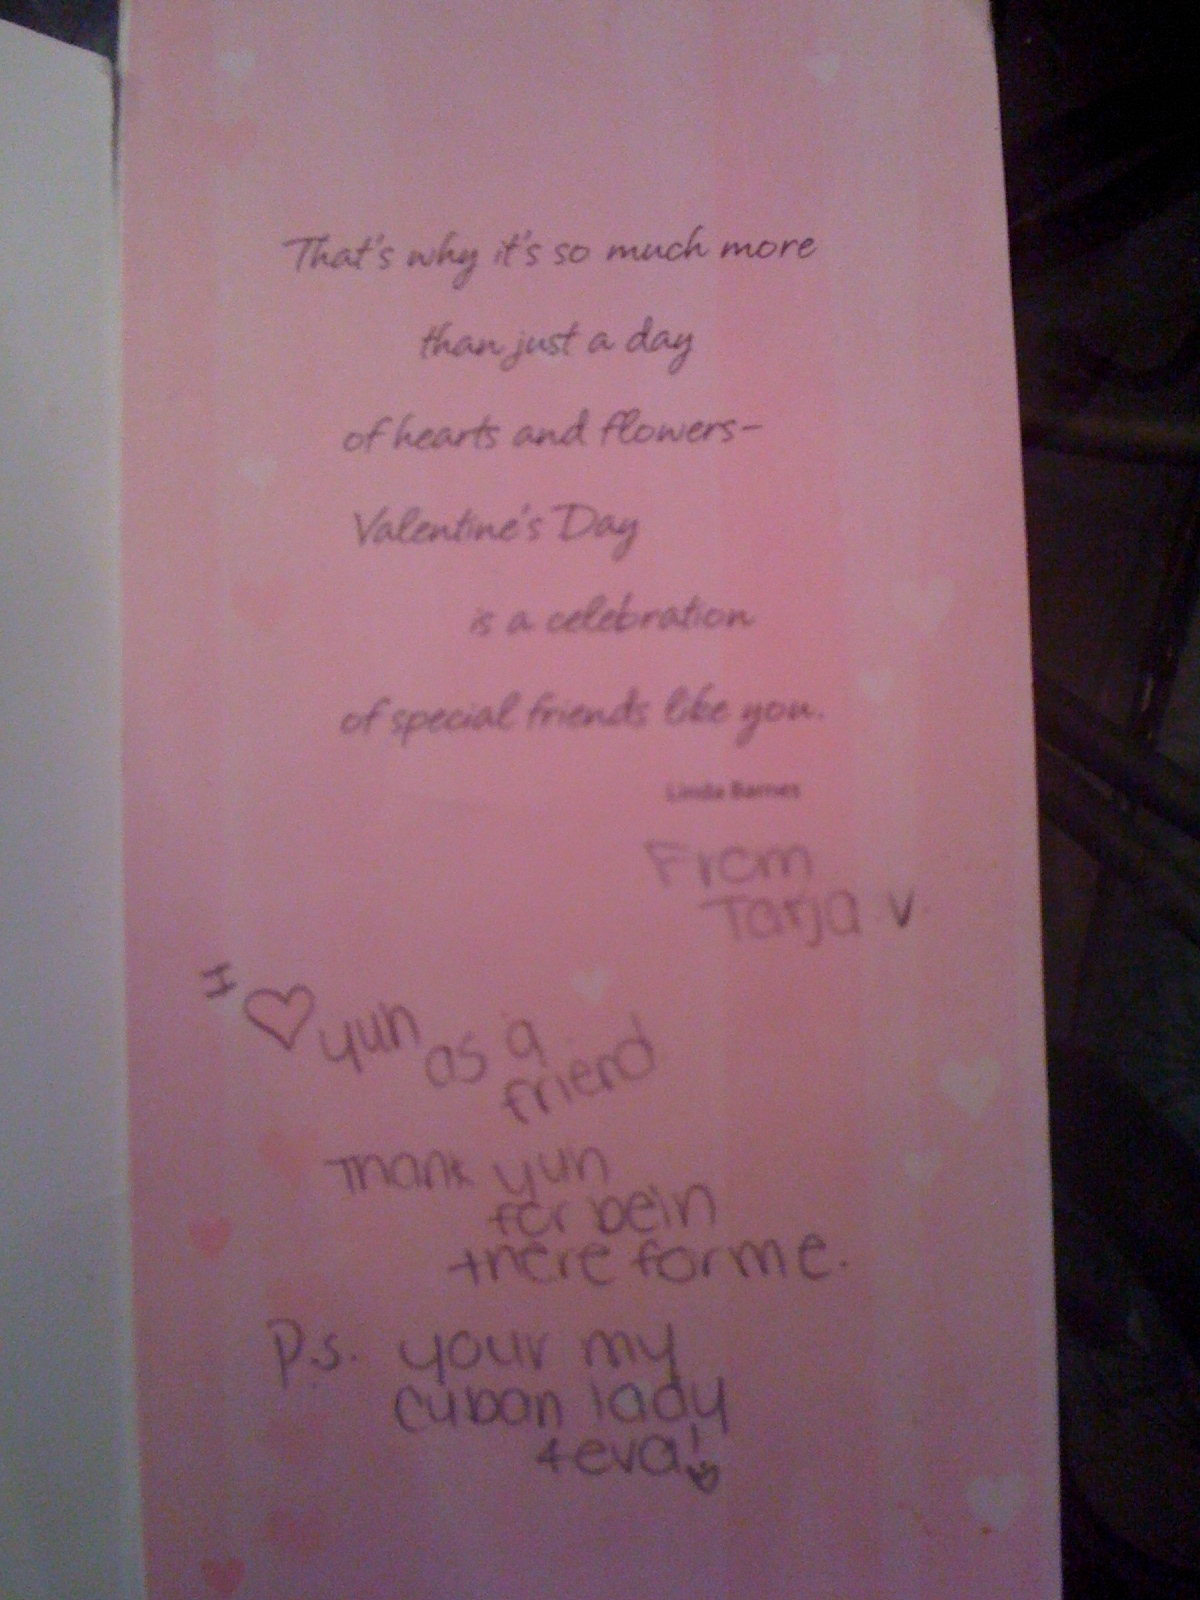 That's why it's so much more
than just a day
of hearts and flowers–
Valentine's Day
is a celebration
of special friends like you.
Linda Barnes
From
Tarja V.
I ♡ yuh as a
friend
Thank yuh
for bein
there for me.
P.s. your my
cuban lady
4eva!